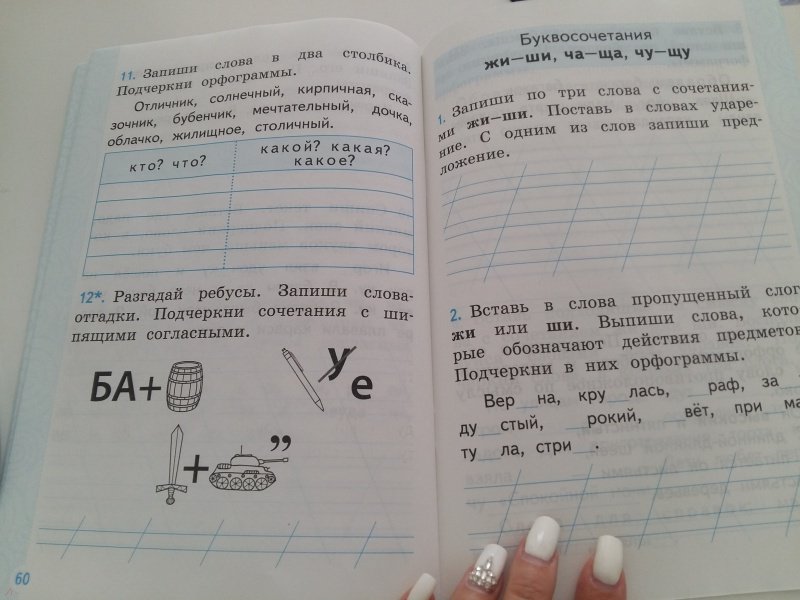 11. Запиши слова в два столбика.
Подчеркни орфограммы.
Отличник, солнечный, кирпичная, ска-
зочник, бубенчик, мечтательный, дочка,
облачко, жилищное, столичный.
кто? что?
какой? какая?
какое?
12*. Разгадай ребусы. Запиши слова-
отгадки. Подчеркни сочетания с ши-
пящими согласными.
БА+
у
е
+ ,,
60
Буквосочетания
жи—ши, ча—ща, чу—щу
1. Запиши по три слова с сочетания-
ми жи—ши. Поставь в словах ударе-
ние. С одним из слов запиши пред-
ложение.
2. Вставь в слова пропущенный слог
жи или ши. Выпиши слова, кото-
рые обозначают действия предметов
Подчеркни в них орфограммы.
Вер__на, кру__лась, __раф, за
ду__стый, __рокий, __вёт, при__ма
ту__ла, стри__.